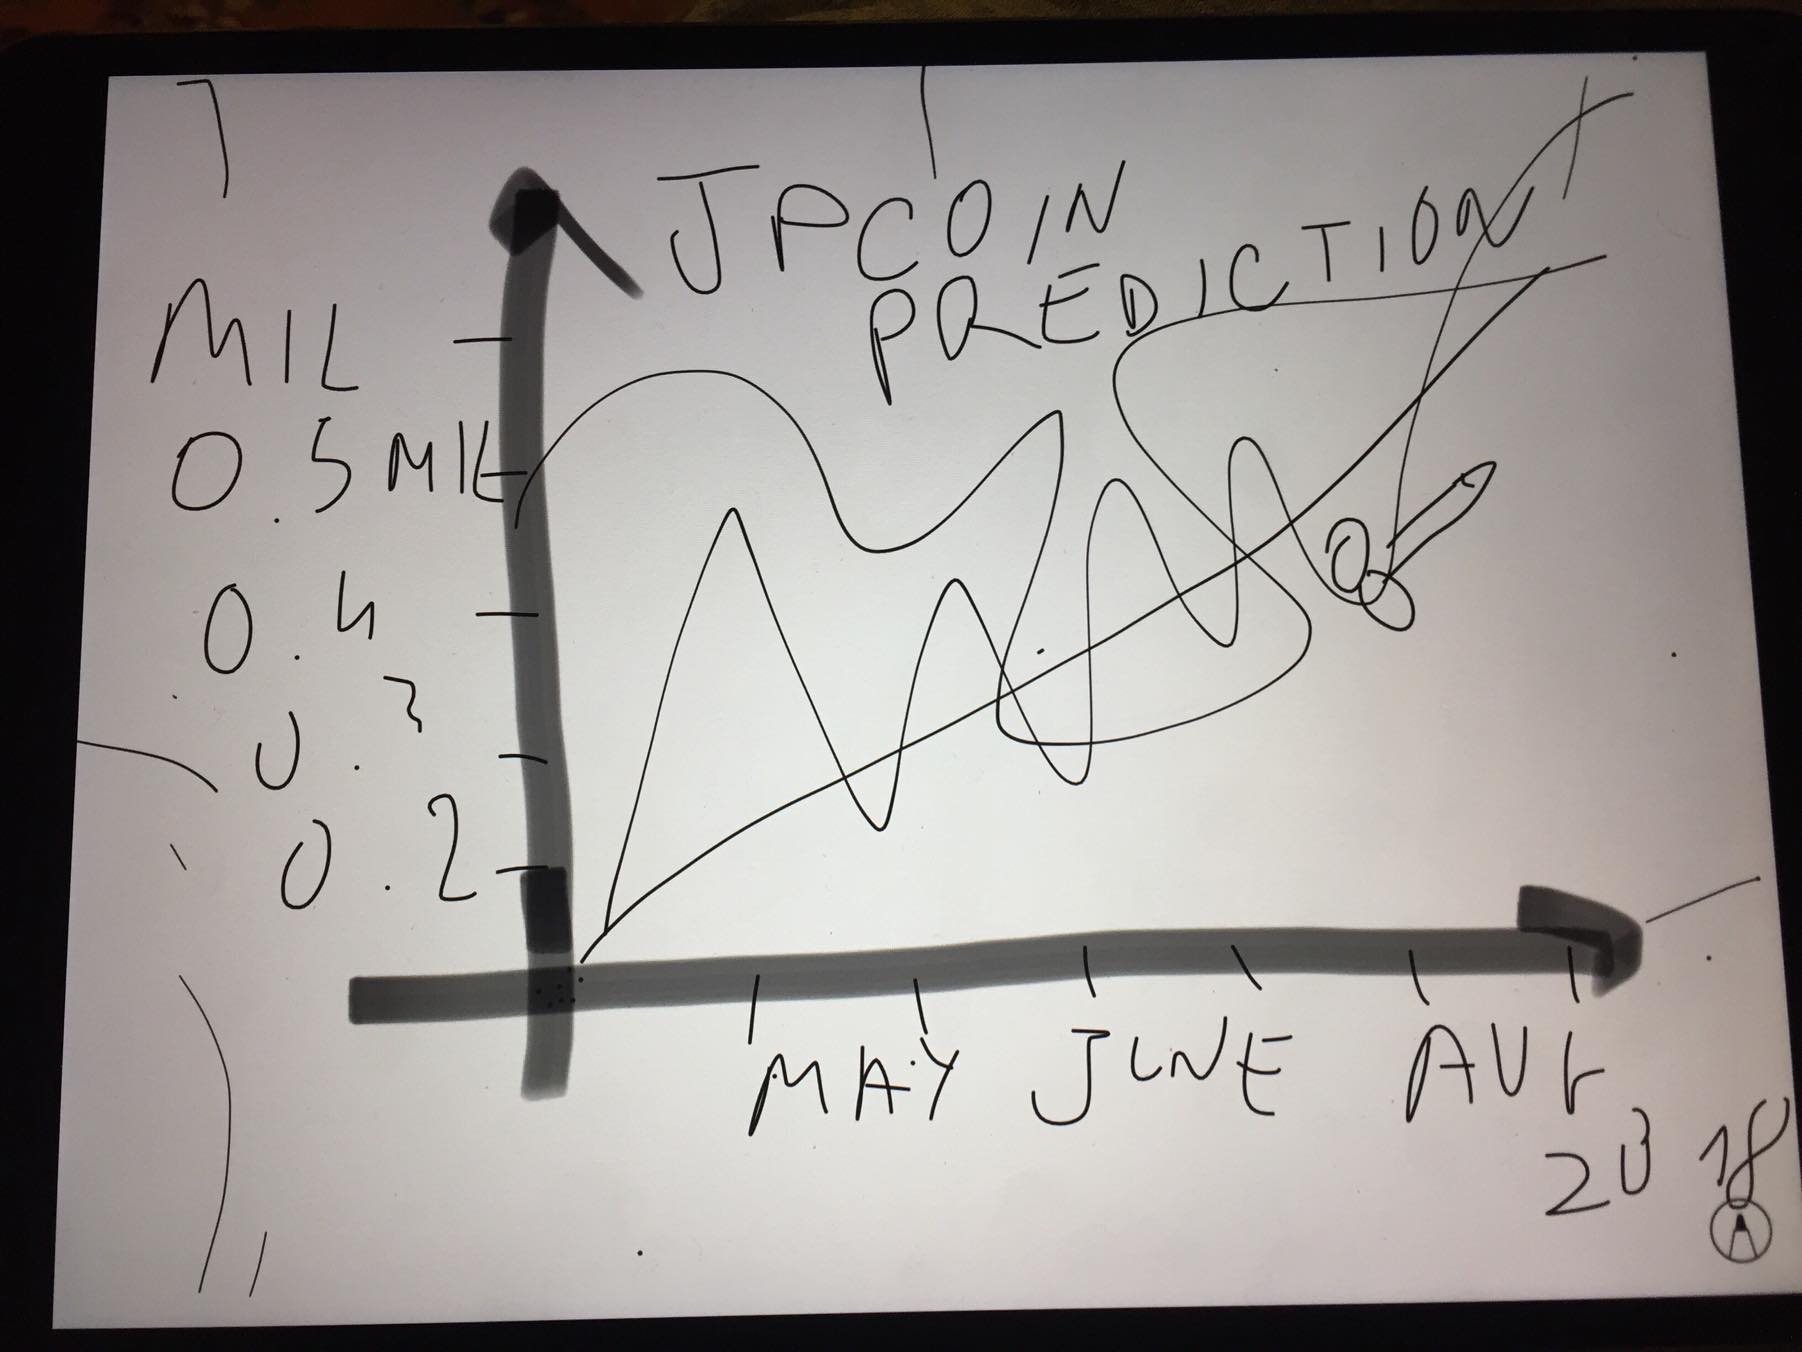 JPCOIN
PREDICTION
MIL
0.5 MIL
0.4
0.3
0.2
MAY JUNE AUG
2018